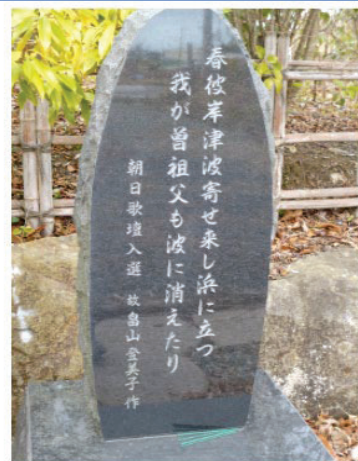 春彼岸津波寄せ来し浜に立つ
我が曽祖父も波に消えたり
朝日歌壇入選 故 畠山登美子 作